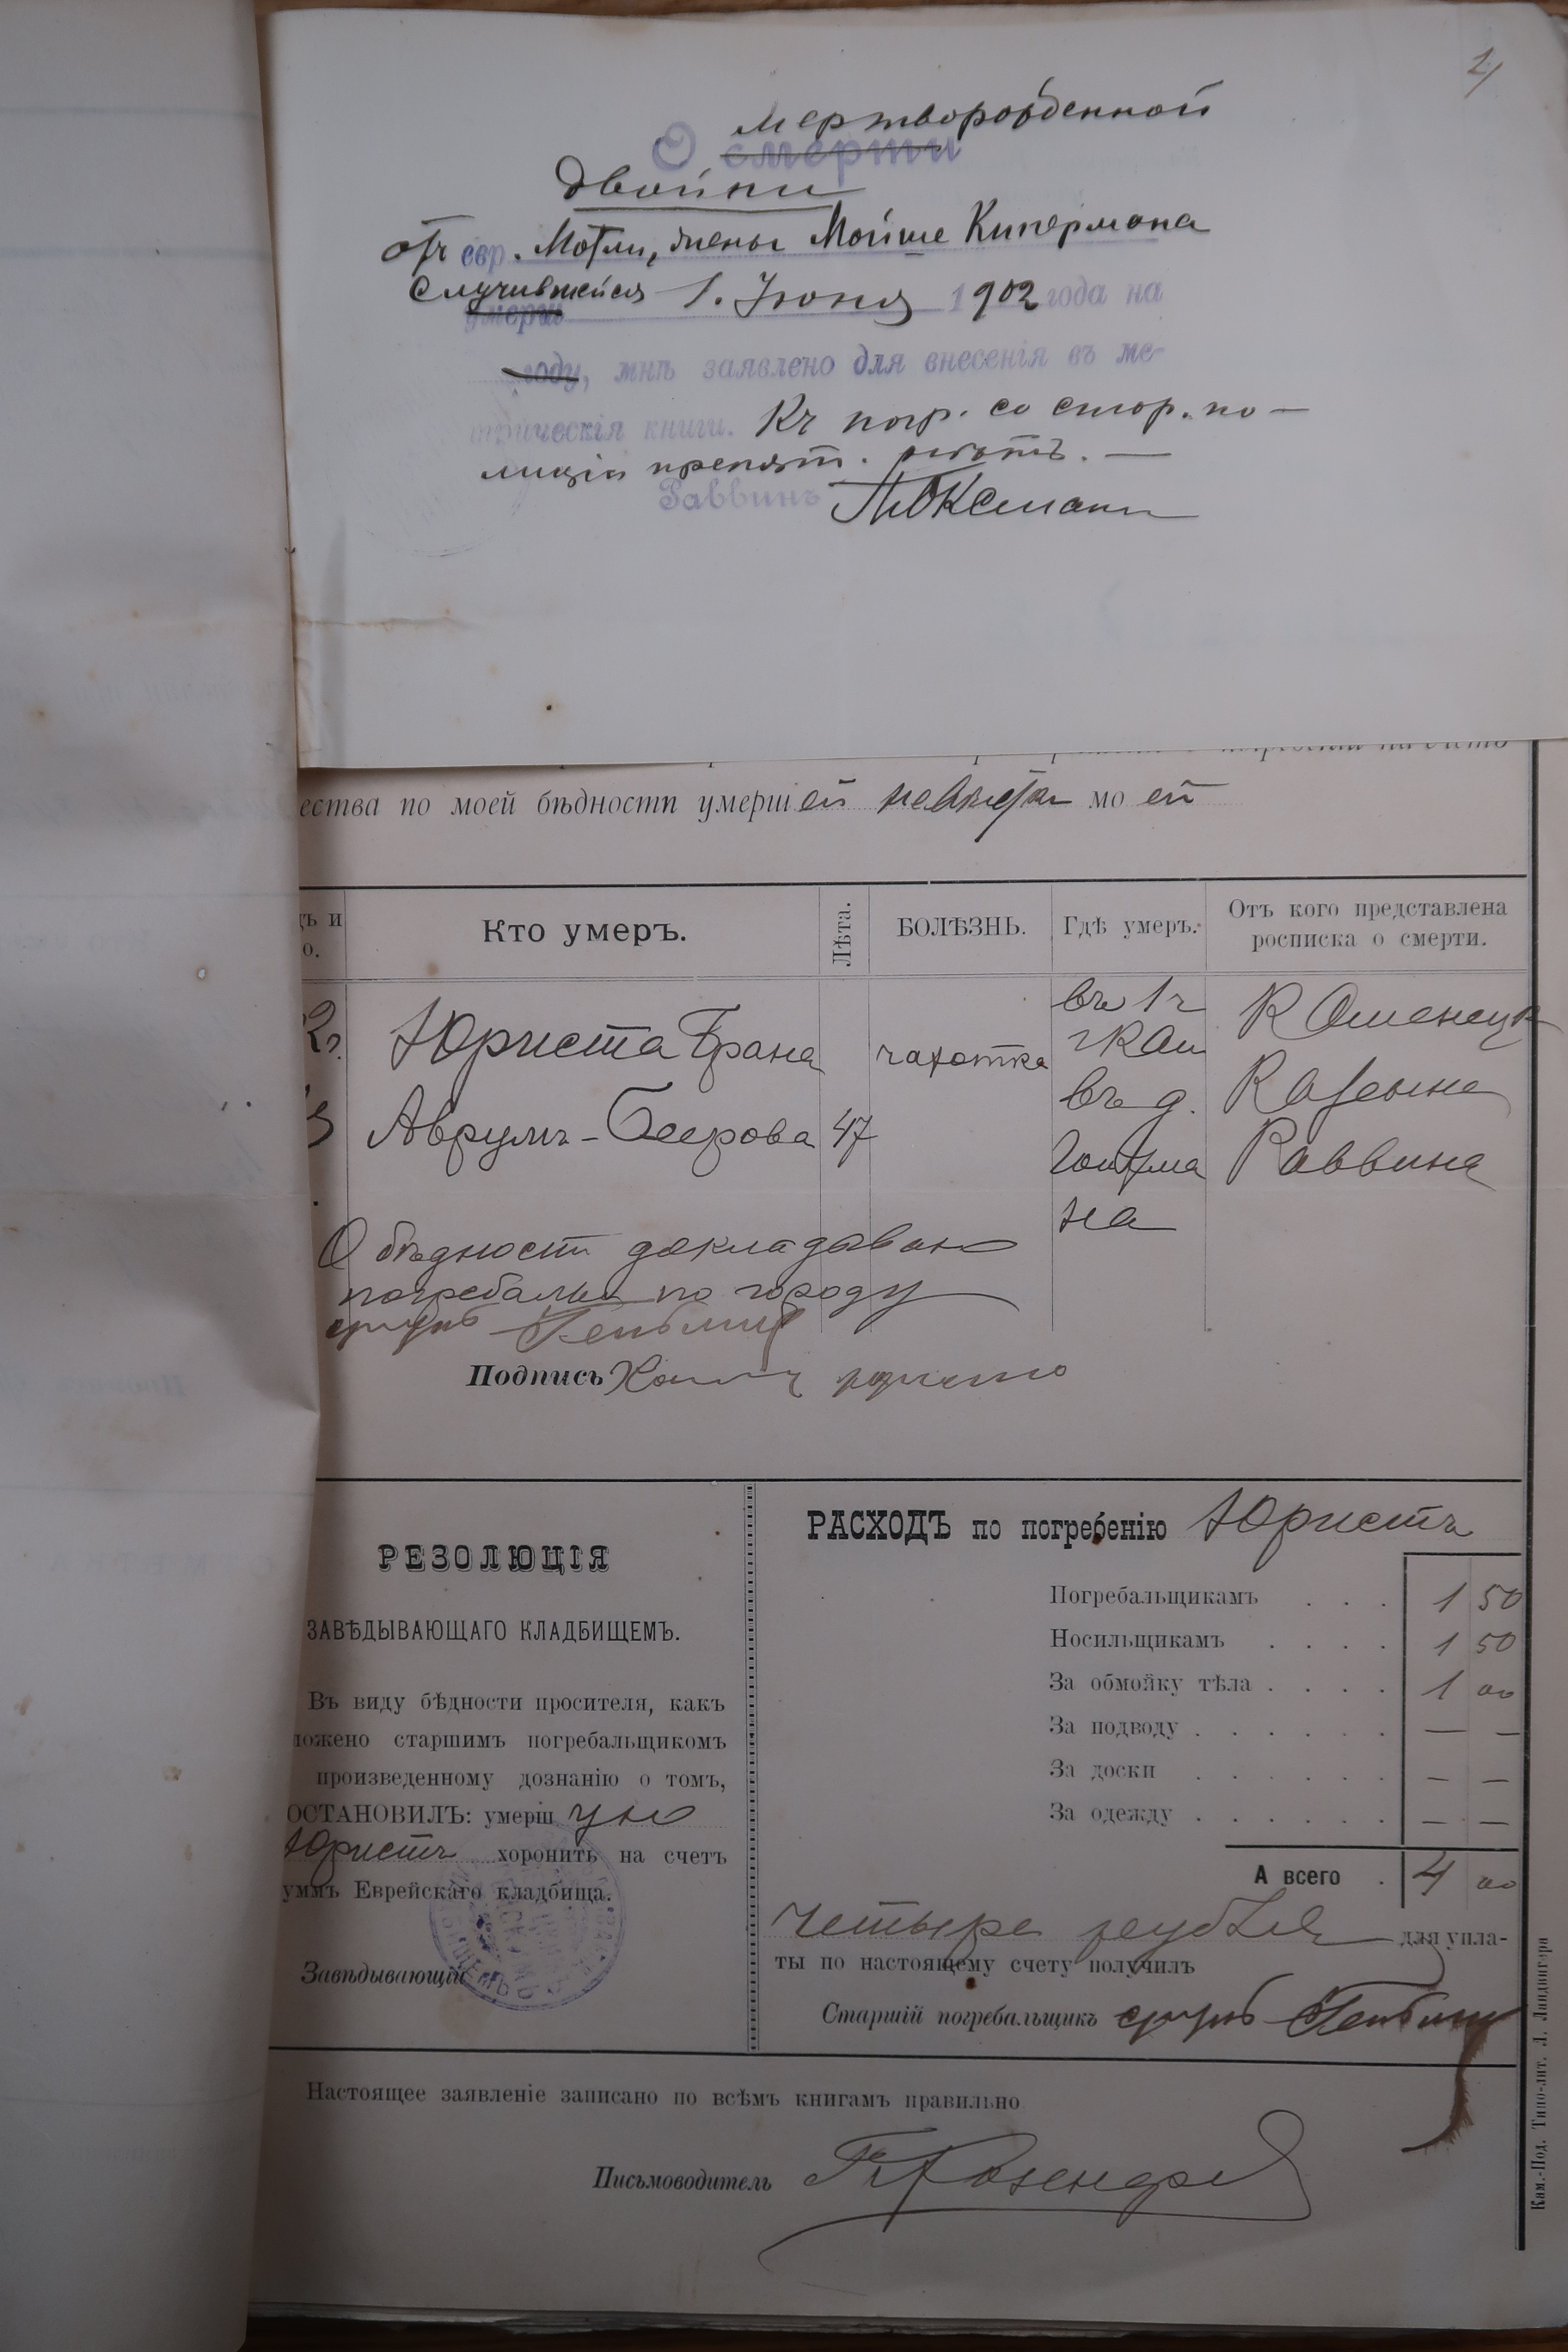 2
мертворожденной
О смерти
двойни
отъ евр. Мотли, жены Мойше Кипермана
случившейся 1. Июня 1902 года на
умерш
году, мнѣ заявлено для внесенія въ ме-
трическія книги. Къ погр. со стор. по-
лиціи препят. нѣтъ. —
Раввинъ
ества по моей бѣдности умершей невѣстки моей
ъ и
о.
Кто умеръ.
Лѣта.
БОЛѢЗНЬ.
Гдѣ умеръ.
Отъ кого представлена
росписка о смерти.
2г.
Юриста Брана
Аврумъ-Беерова
47
чахотка
въ 1ч
гКам
въ д.
Гойхма
на
Каменецк
Казенна
Раввина
О бѣдности докладываю
погребальщ по городу
Подпись
РЕЗОЛЮЦІЯ
ЗАВѢДЫВАЮЩАГО КЛАДБИЩЕМЪ.
Въ виду бѣдности просителя, какъ
ложено старшимъ погребальщикомъ
произведенному дознанію о томъ,
ОСТАНОВИЛЪ: умерш ую
Юристъ хоронить на счетъ
уммъ Еврейскаго кладбища.
Завѣдывающій
РАСХОДЪ по погребенію Юристъ
Погребальщикамъ . . . 1 50
Носильщикамъ . . . . 1 50
За обмойку тѣла . . . . 1 00
За подводу . . . . . . — —
За доски . . . . . . — —
За одежду . . . . . . — —
А всего . 4 00
Четыре рубля для упла-
ты по настоящему счету получилъ
Старшій погребальщикъ
Настоящее заявленіе записано по всѣмъ книгамъ правильно
Письмоводитель
Кам.-Под. Типо-лит. Л. Ландвигера